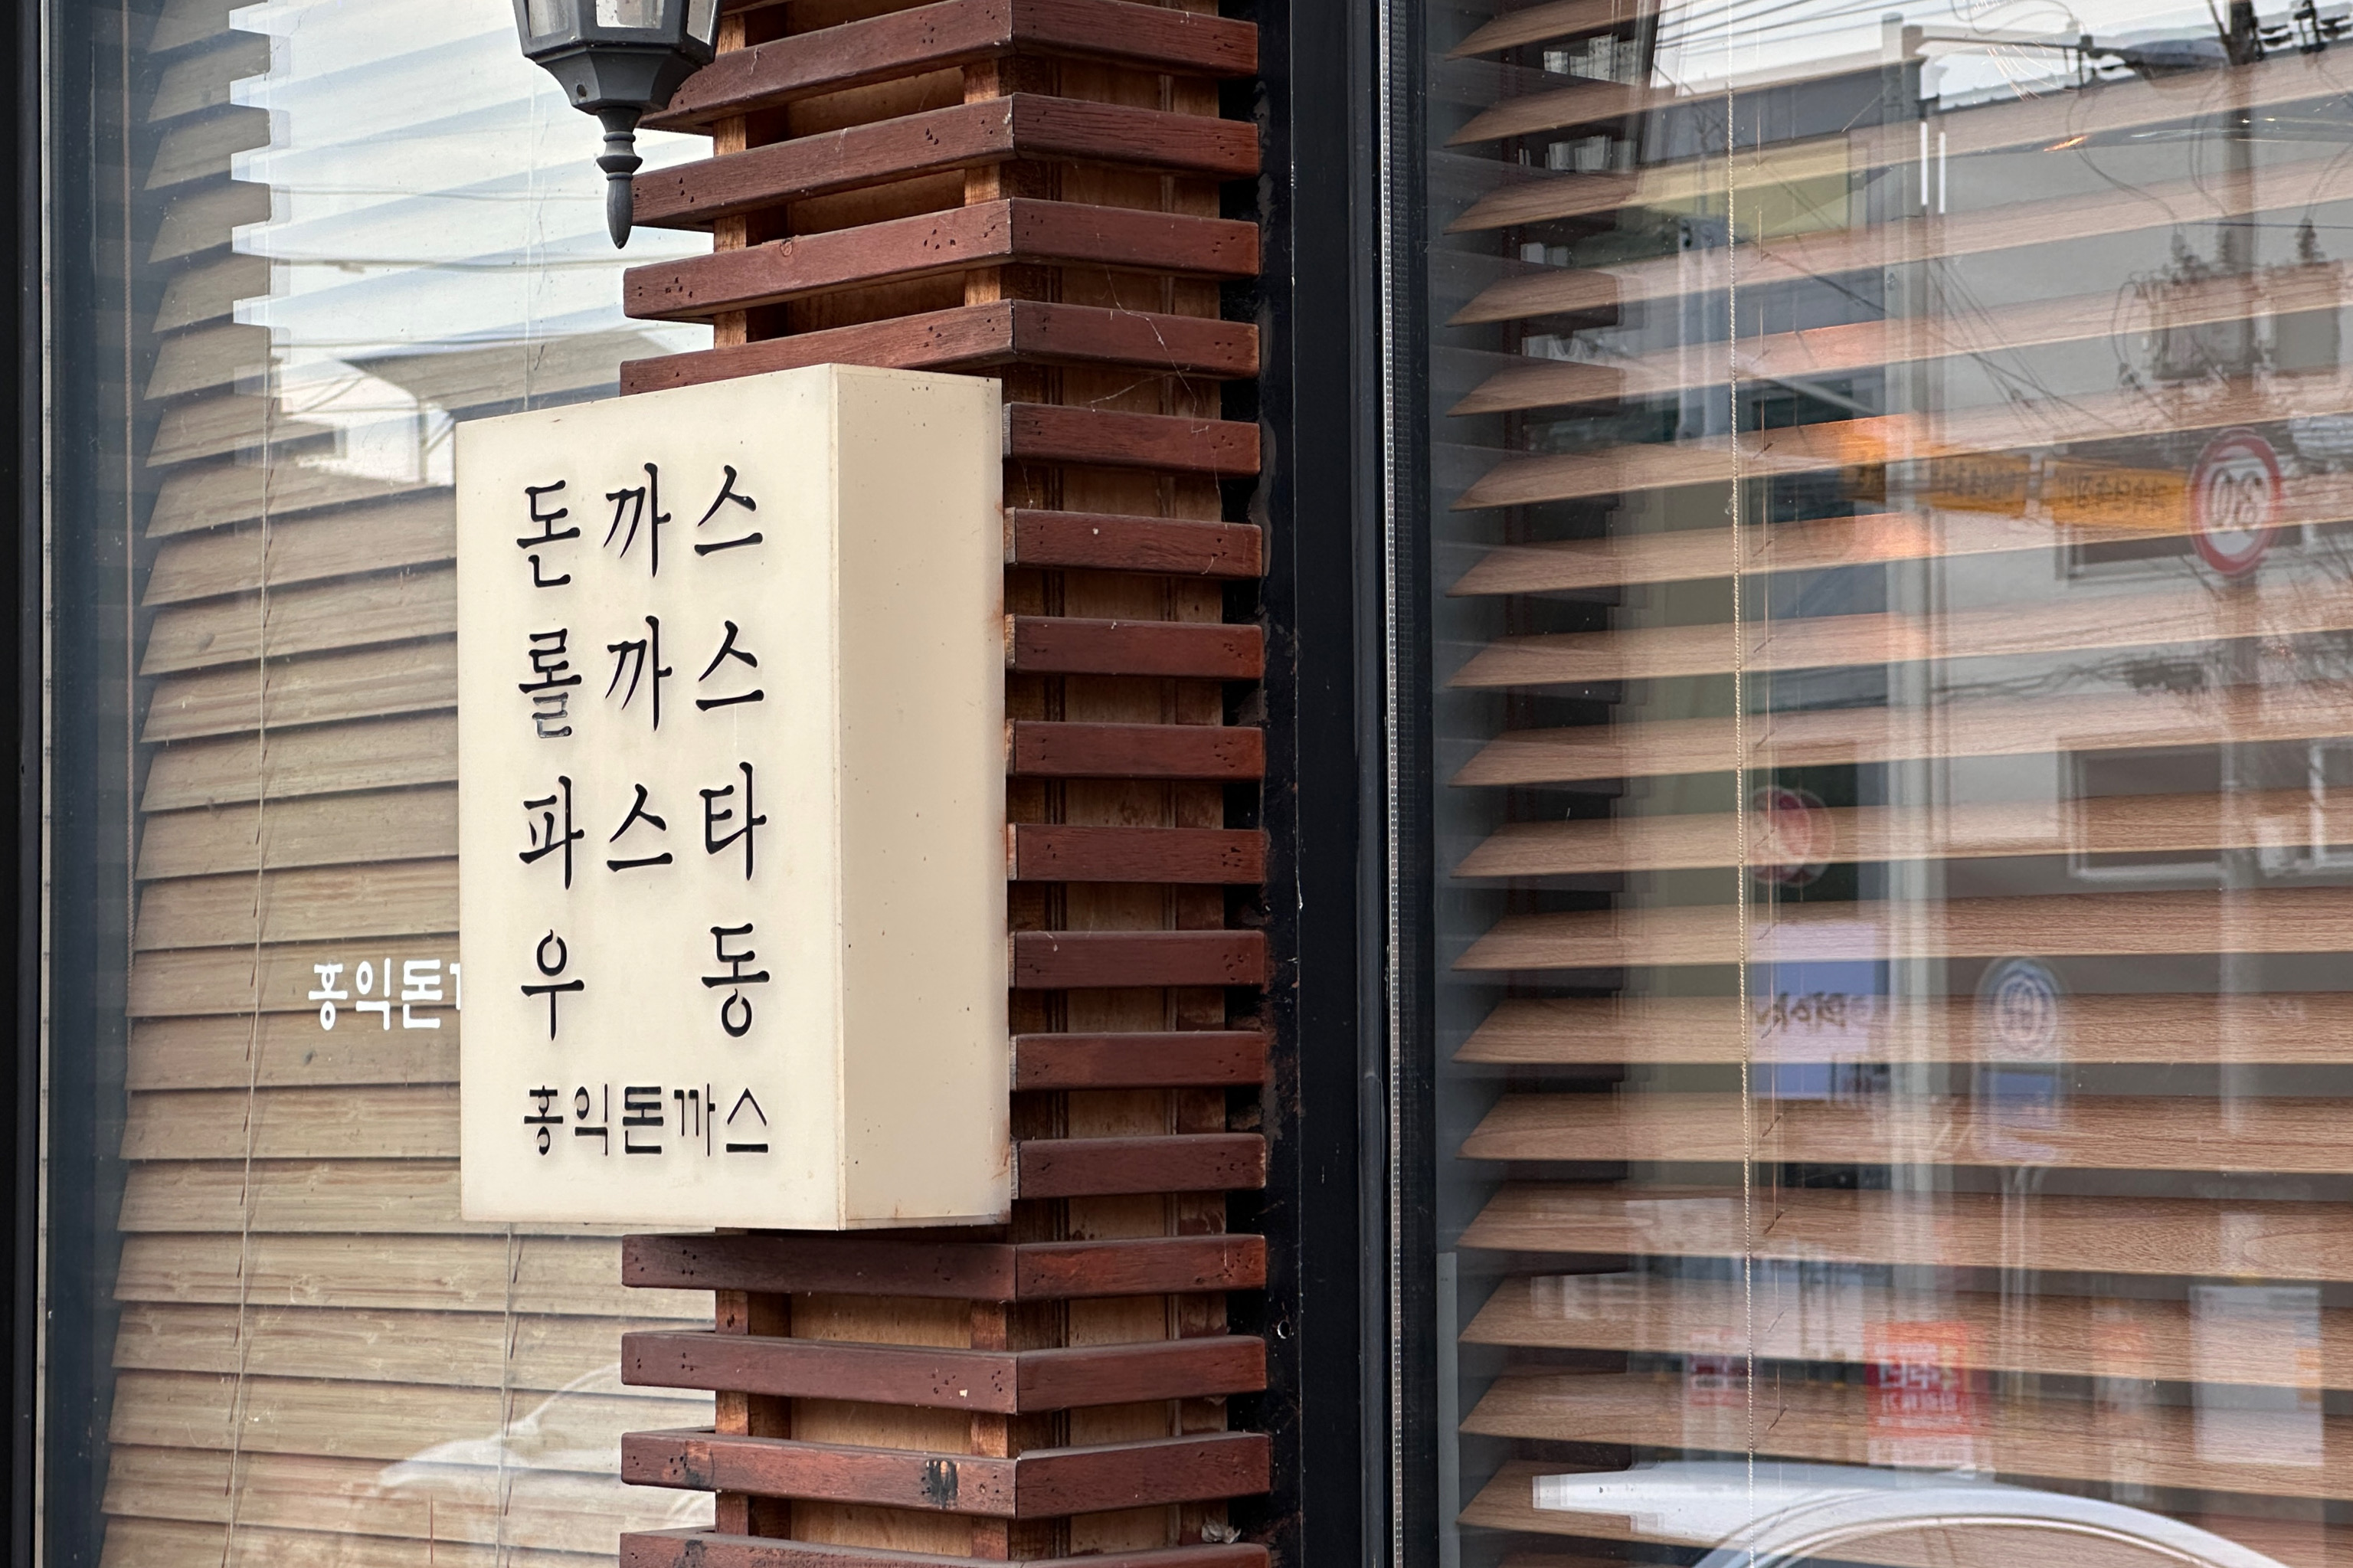 돈까스
롤까스
파스타
우 동
홍익돈까스
홍익돈
30